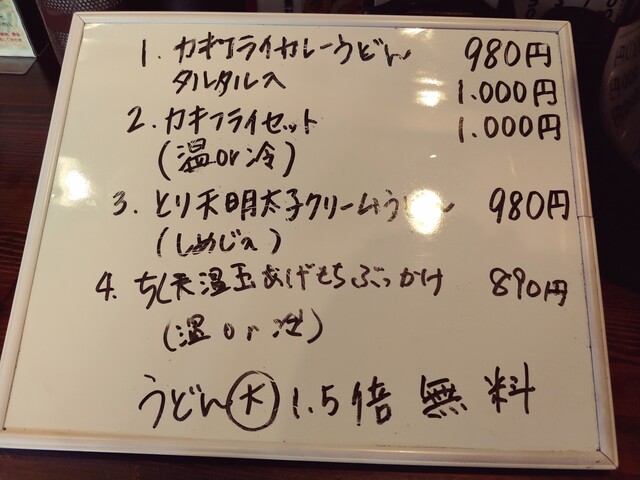 1. カキフライカレーうどん 980円
タルタル入 1.000円
2. カキフライセット 1.000円
(温or冷)
3. とり天明太子クリームうどん 980円
(しめじ入)
4. ちく天温玉あげもちぶっかけ 890円
(温or冷)
うどん大 1.5倍 無料